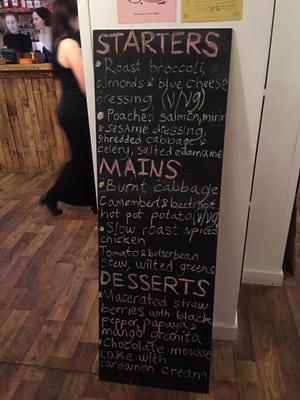 STARTERS
• Roast broccoli,
almonds & blue cheese
dressing (V/VG)
• Poached salmon, mirin
& sesame dressing,
shredded cabbage &
celery, salted edamame
MAINS
• Burnt cabbage
Camembert & beetroot
hot pot potato (V/VG)
• Slow roast spiced
chicken
Tomato & butterbean
stew, wilted greens
DESSERTS
• Macerated straw-
berries with black
pepper, papaya &
mango granita
• Chocolate mousse
cake with
cardamon cream